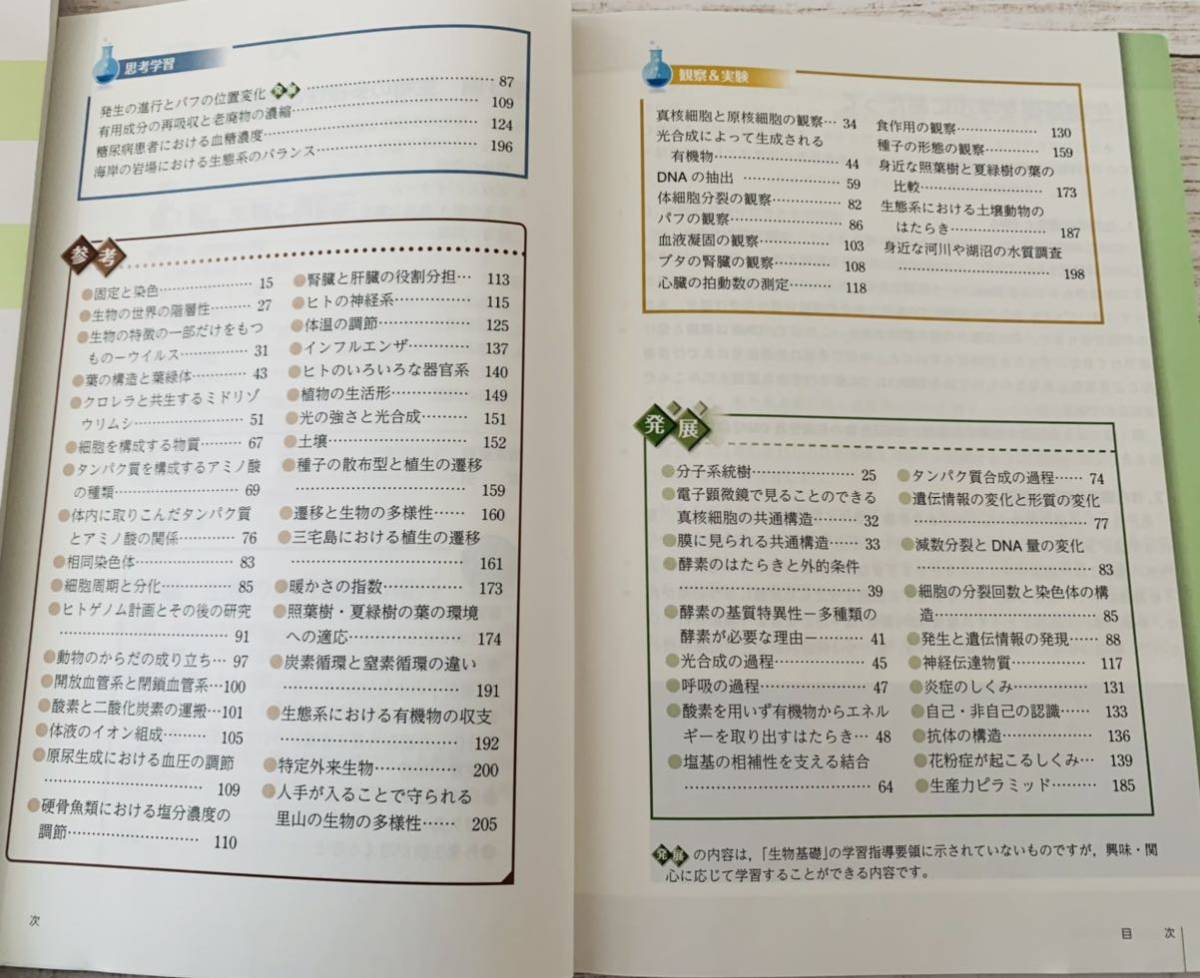 思考学習
発生の進行とパフの位置変化 発展 …… 87
有用成分の再吸収と老廃物の濃縮 …… 109
糖尿病患者における血糖濃度 …… 124
海岸の岩場における生態系のバランス …… 196
参考
●固定と染色 …… 15
●生物の世界の階層性 …… 27
●生物の特徴の一部だけをもつ
ものーウイルス …… 31
●葉の構造と葉緑体 …… 43
●クロレラと共生するミドリゾ
ウリムシ …… 51
●細胞を構成する物質 …… 67
●タンパク質を構成するアミノ酸
の種類 …… 69
●体内に取りこんだタンパク質
とアミノ酸の関係 …… 76
●相同染色体 …… 83
●細胞周期と分化 …… 85
●ヒトゲノム計画とその後の研究
…… 91
●動物のからだの成り立ち … 97
●開放血管系と閉鎖血管系 … 100
●酸素と二酸化炭素の運搬 … 101
●体液のイオン組成 …… 105
●原尿生成における血圧の調節
…… 109
●硬骨魚類における塩分濃度の
調節 …… 110
●腎臓と肝臓の役割分担 … 113
●ヒトの神経系 …… 115
●体温の調節 …… 125
●インフルエンザ …… 137
●ヒトのいろいろな器官系 140
●植物の生活形 …… 149
●光の強さと光合成 …… 151
●土壌 …… 152
●種子の散布型と植生の遷移
…… 159
●遷移と生物の多様性 …… 160
●三宅島における植生の遷移
…… 161
●暖かさの指数 …… 173
●照葉樹・夏緑樹の葉の環境
への適応 …… 174
●炭素循環と窒素循環の違い
…… 191
●生態系における有機物の収支
…… 192
●特定外来生物 …… 200
●人手が入ることで守られる
里山の生物の多様性 …… 205
次
観察&実験
真核細胞と原核細胞の観察 … 34
光合成によって生成される
有機物 …… 44
DNAの抽出 …… 59
体細胞分裂の観察 …… 82
パフの観察 …… 86
血液凝固の観察 …… 103
ブタの腎臓の観察 …… 108
心臓の拍動数の測定 …… 118
食作用の観察 …… 130
種子の形態の観察 …… 159
身近な照葉樹と夏緑樹の葉の
比較 …… 173
生態系における土壌動物の
はたらき …… 187
身近な河川や湖沼の水質調査
…… 198
発展
●分子系統樹 …… 25
●電子顕微鏡で見ることのできる
真核細胞の共通構造 …… 32
●膜に見られる共通構造 …… 33
●酵素のはたらきと外的条件
…… 39
●酵素の基質特異性ー多種類の
酵素が必要な理由ー …… 41
●光合成の過程 …… 45
●呼吸の過程 …… 47
●酸素を用いず有機物からエネル
ギーを取り出すはたらき … 48
●塩基の相補性を支える結合
…… 64
●タンパク質合成の過程 …… 74
●遺伝情報の変化と形質の変化
…… 77
●減数分裂とDNA量の変化
…… 83
●細胞の分裂回数と染色体の構
造 …… 85
●発生と遺伝情報の発現 …… 88
●神経伝達物質 …… 117
●炎症のしくみ …… 131
●自己・非自己の認識 …… 133
●抗体の構造 …… 136
●花粉症が起こるしくみ … 139
●生産力ピラミッド …… 185
発展 の内容は,「生物基礎」の学習指導要領に示されていないものですが,興味・関
心に応じて学習することができる内容です。
目 次